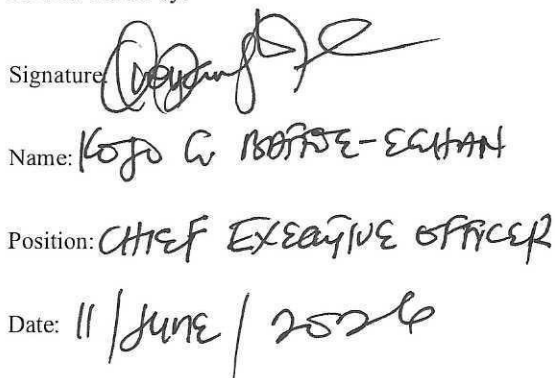 Signature:
Name: KOJO G
Position: CHIEF EXECUTIVE OFFICER
Date: 11 / JUNE / 2026